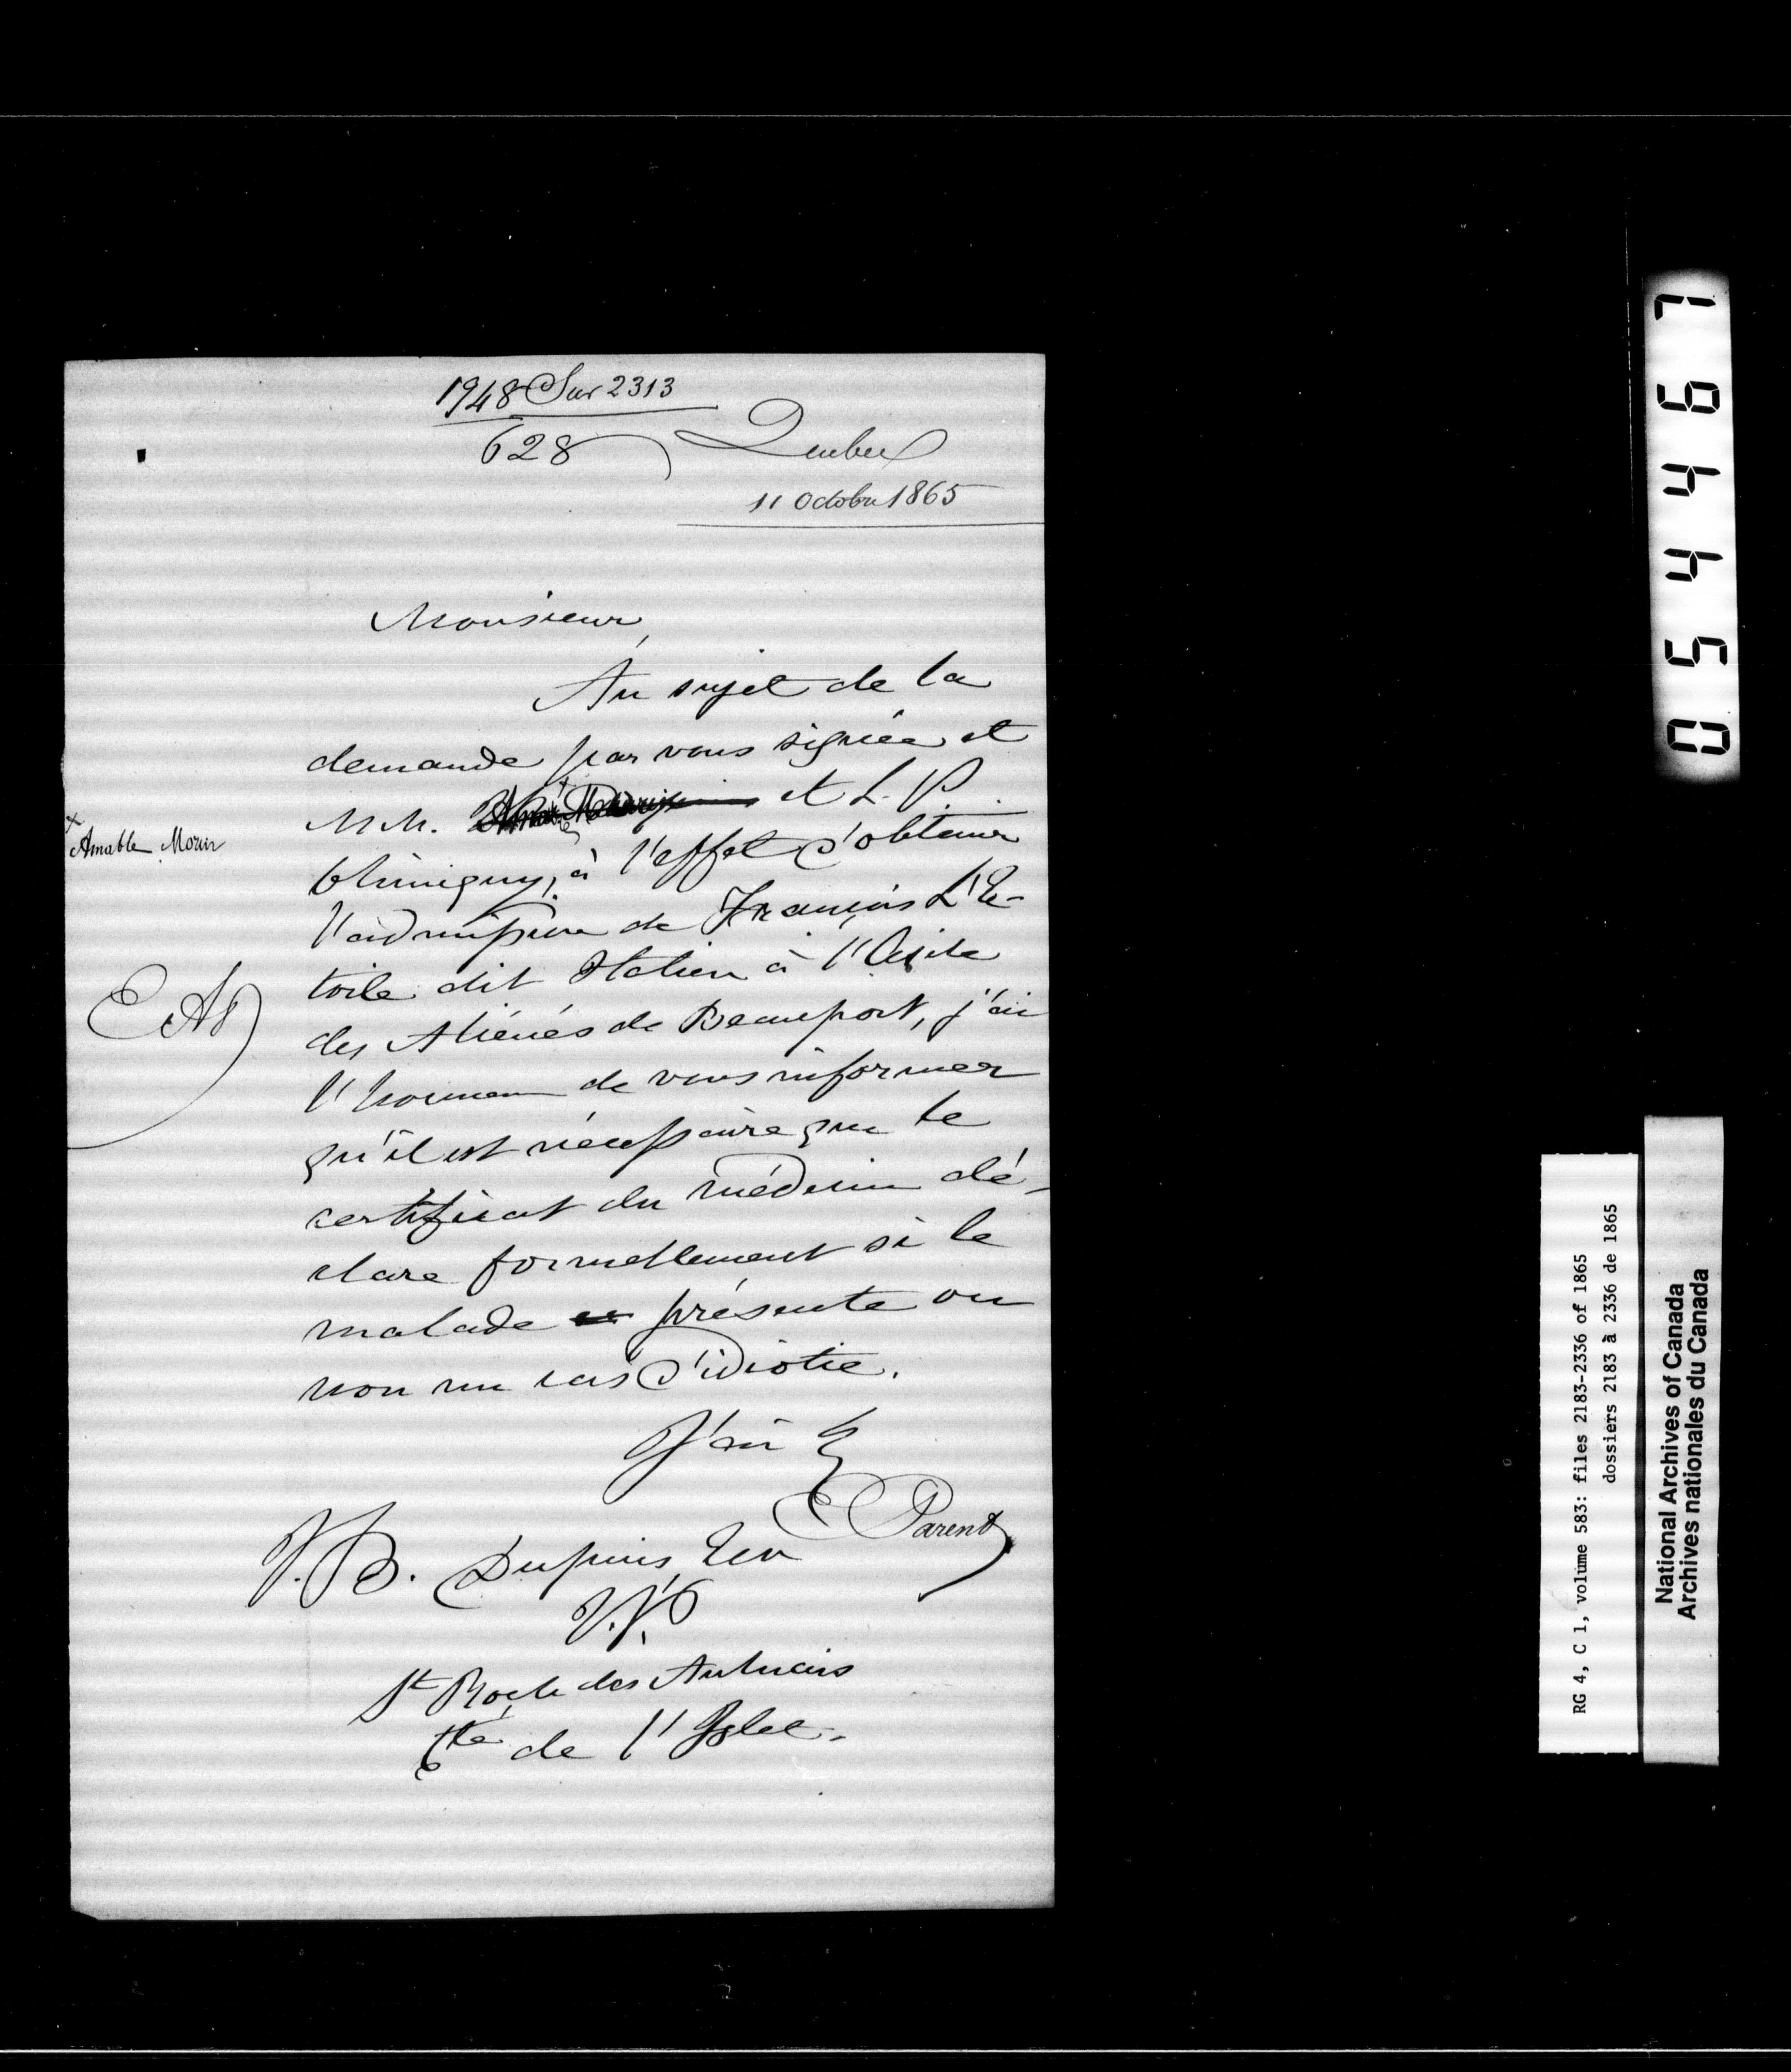 1948 Sur 2313
628
Quebec
11 Octobre 1865
Monsieur,
Au sujet de la
demande par vous signée et
MM. et L. P.
+
Amable Morin
Chinigny, à l'effet d'obtenir
l'admission de François L'E-
toile dit Italien à l'Asile
des Aliénés de Beauport, j'ai
l'honneur de vous informer
qu'il est nécessaire que le
certificat du médecin dé-
clare formellement si le
malade présente ou
non un cas d'idiotie.
J'ai &
E Parent
J. B. Dupuis, Ecr
J. P.
St Roch des Aulnais
Cté de l'Islet.
054467
RG 4, C 1, volume 583: files 2183-2336 of 1865
dossiers 2183 à 2336 de 1865
National Archives of Canada
Archives nationales du Canada